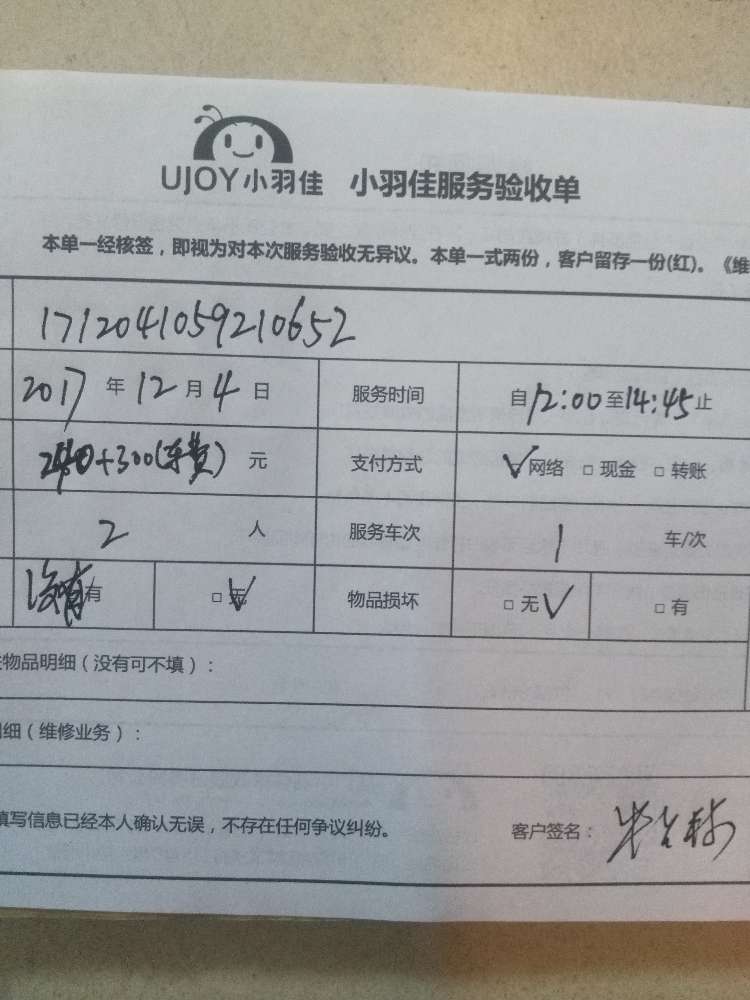 UJOY小羽佳 小羽佳服务验收单
本单一经核签，即视为对本次服务验收无异议。本单一式两份，客户留存一份(红)。《维
1712041059210652
2017 年 12 月 4 日 服务时间 自 12:00 至 14:45 止
240+300(车费) 元 支付方式 ☑网络 □现金 □转账
2 人 服务车次 1 车/次
没有 有 □无√ 物品损坏 □无√ □有
物品明细（没有可不填）：
细（维修业务）：
填写信息已经本人确认无误，不存在任何争议纠纷。 客户签名：